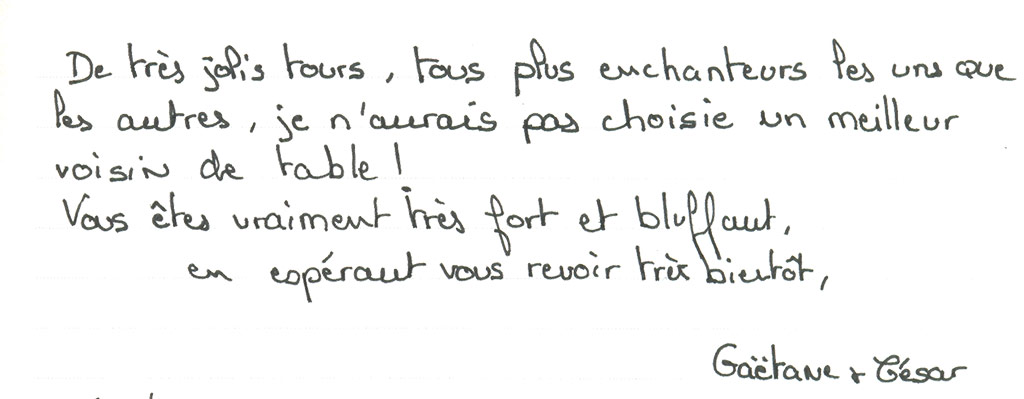 De très jolis tours, tous plus enchanteurs les uns que
les autres, je n'aurais pas choisie un meilleur
voisin de table !
Vous êtes vraiment très fort et bluffant,
en espérant vous revoir très bientôt,
Gaëtane + César